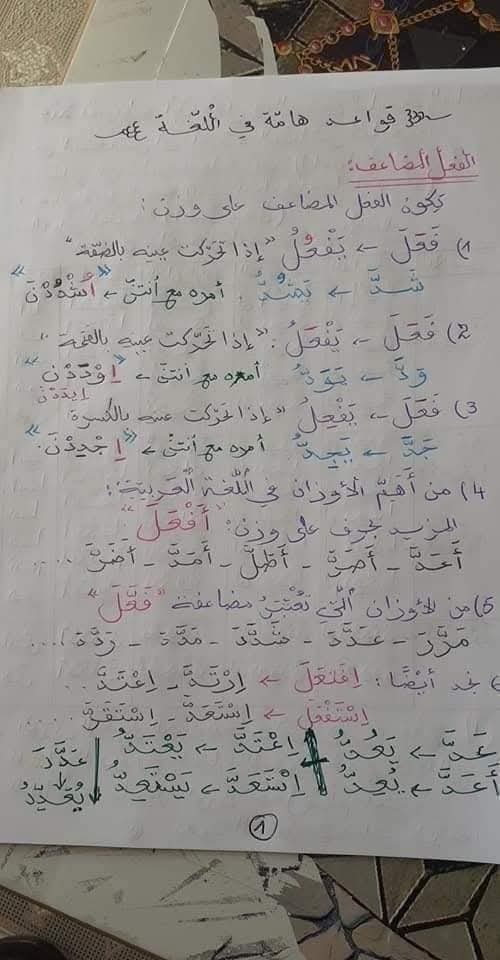 قواعد هامّة في اُللّغة
الفعل المضاعف:
يكون الفعل المضاعف على وزن:
1) فَعَلَ ← يَفْعُلُ "إذا تحرّكت عينه بالضمّة"
شَدَّ ← يَشُدُّ. أمره مع أنتنّ ← "اُشْدُدْنَ"
2) فَعَلَ ← يَفْعَلُ: "إذا تحرّكت عينه بالفتحة"
وَدَّ ← يَوَدُّ. أمره مع أنتنّ ← "اِوْدَدْنَ"
اِيدَدْنَ
3) فَعَلَ ← يَفْعِلُ "إذا تحرّكت عينه بالكسرة"
جَدَّ ← يَجِدُّ. أمره مع أنتنّ ← "اِجْدِدْنَ."
4) من أهمّ الأوزان في اُللّغة اُلعربيّة:
المزيد بحرف على وزن: "أَفْعَلَ"
أَعَدَّ - أَصَرَّ - أَطَلَّ - أَمَدَّ - أَضَرَّ ....
5) من الأوزان اُلّتي تُعْتَبَرُ مضاعفة "فَعَّلَ"
مَرَّرَ - عَدَّدَ - شَدَّدَ - مَدَّدَ - رَدَّدَ ....
نجد أيْضًا: اِفْتَعَلَ ← اِرْتَدَّ - اِعْتَدَّ ..
اِسْتَفْعَلَ ← اِسْتَعَدَّ - اِسْتَقَرَّ ....
عَدَّ ← يَعُدُّ اِعْتَدَّ ← يَعْتَدُّ عَدَّدَ
أَعَدَّ ← يُعِدُّ اِسْتَعَدَّ ← يَسْتَعِدُّ يُعَدِّدُ
1